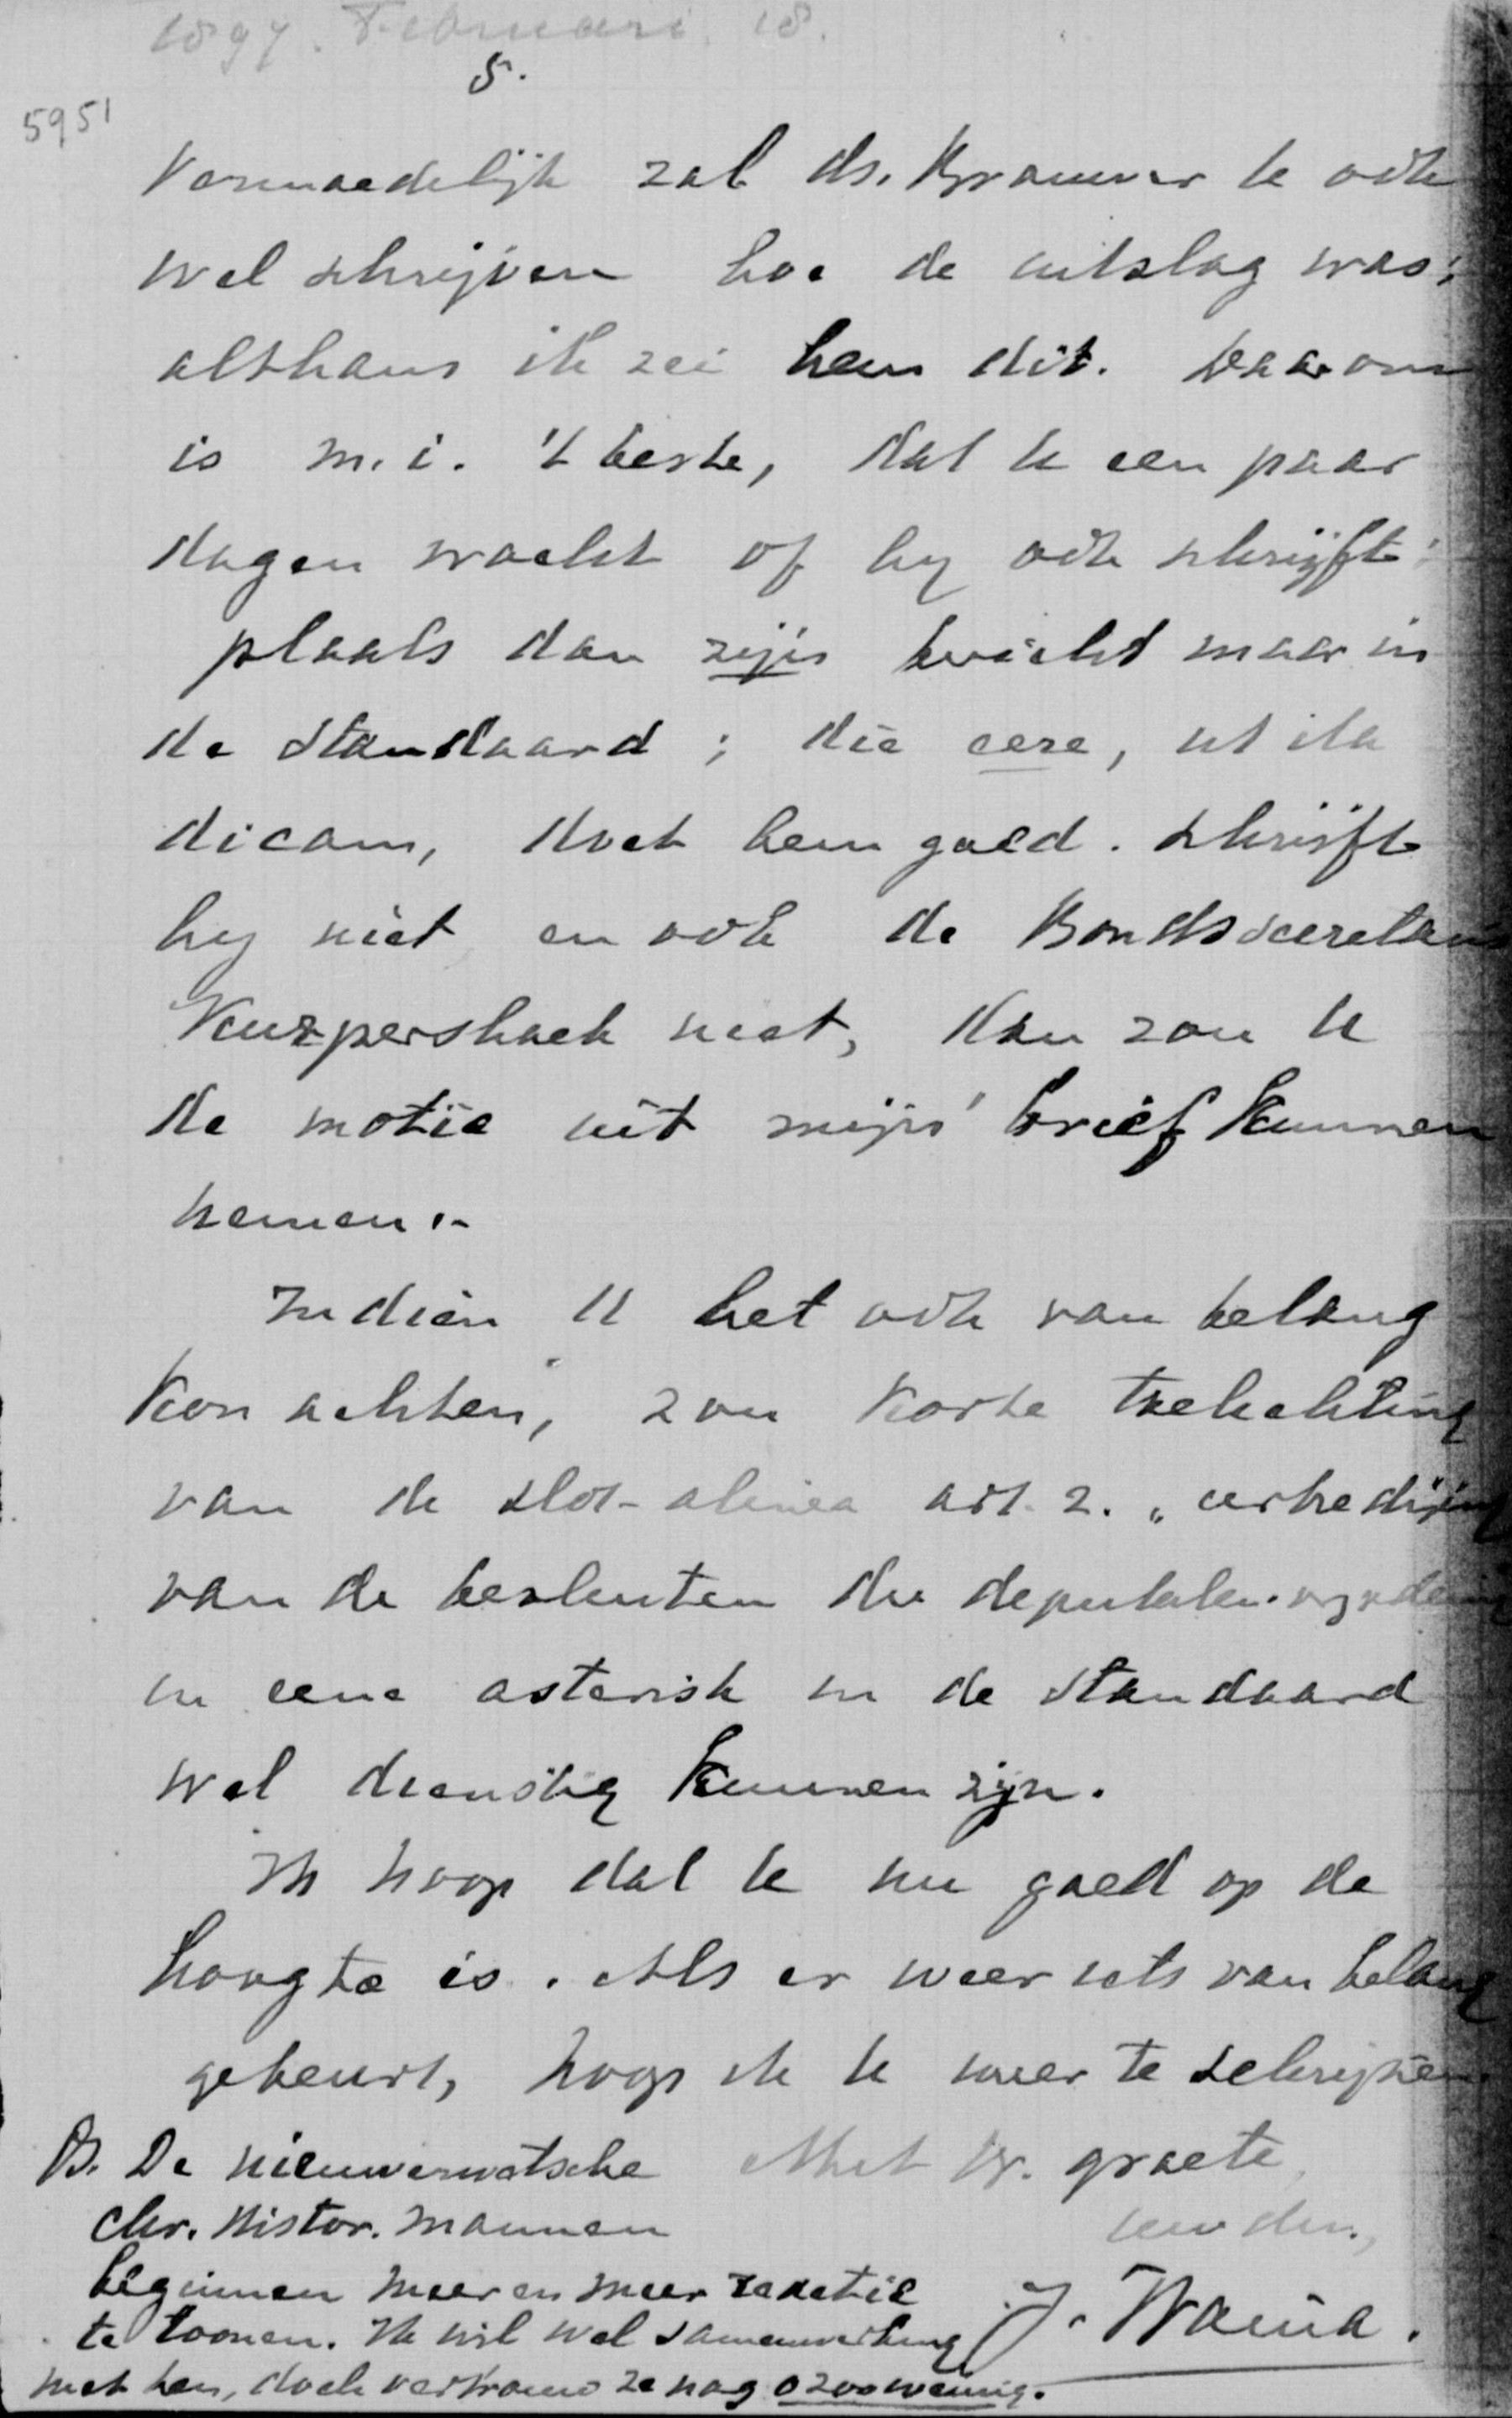 1897. Februari. 18.
5.
5951
Vermoedelijk zal ds. Brouwer U ook
wel schrijven hoe de uitslag was;
althans ik zei hem dit. Daarom
is m.i. 't beste, dat U een paar
dagen wacht of hy ook schrijft;
plaats dan zijn bericht maar in
de Standaard; die eere, ut ita
dicam, doet hem goed. Schrijft
hy niet en ook de Bondssecretaris
niet, dan zou U
de motie uit mijn brief kunnen
nemen.-
Indien U het ook van belang
kon achten, zou korte toelichting
van de slot-alinea art. 2. „
van de besluiten der deputaten-
in eene asterisk in de Standaard
wel dienstig kunnen zijn.
Ik hoop dat U nu goed op de
hoogte is. Als er weer iets van belang
gebeurt, hoop ik U weer te schrijven.
Met br. groete,
uw dw.,
J.
PS. De nieuwerwetsche
chr. histor. mannen
beginnen meer en meer reactie
te toonen. Ik wil wel samenwerking
met hen, doch vertrouw ze nog o zoo weinig.